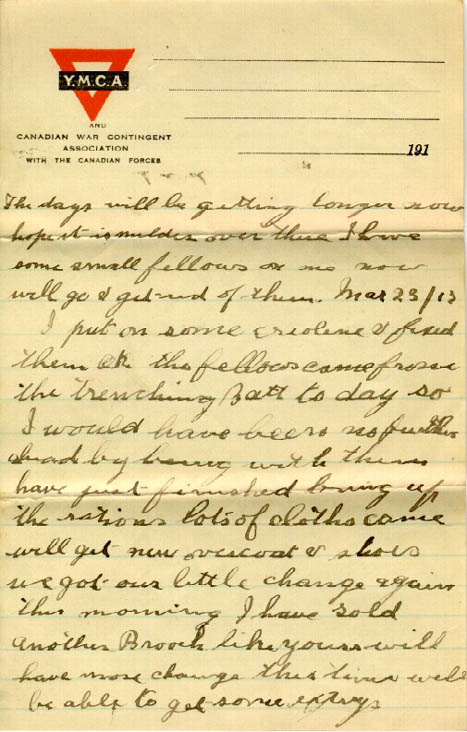 Y.M.C.A.
AND
CANADIAN WAR CONTINGENT
ASSOCIATION
WITH THE CANADIAN FORCES
191
The days will be getting longer now
hope it is milder over there I have
some small fellows on me now
will go & get rid of them. Mar 23/17
I put on some creoline & fixed
them ok the fellows came from
the trenching Batt to day so
I would have been no further
ahead by being with them
have just finished bring up
the rations lots of cloths came
will get new overcoat & shoes
we got our little change again
this morning I have sold
another Brooch like yours will
have more change this time will
be able to get some extrys